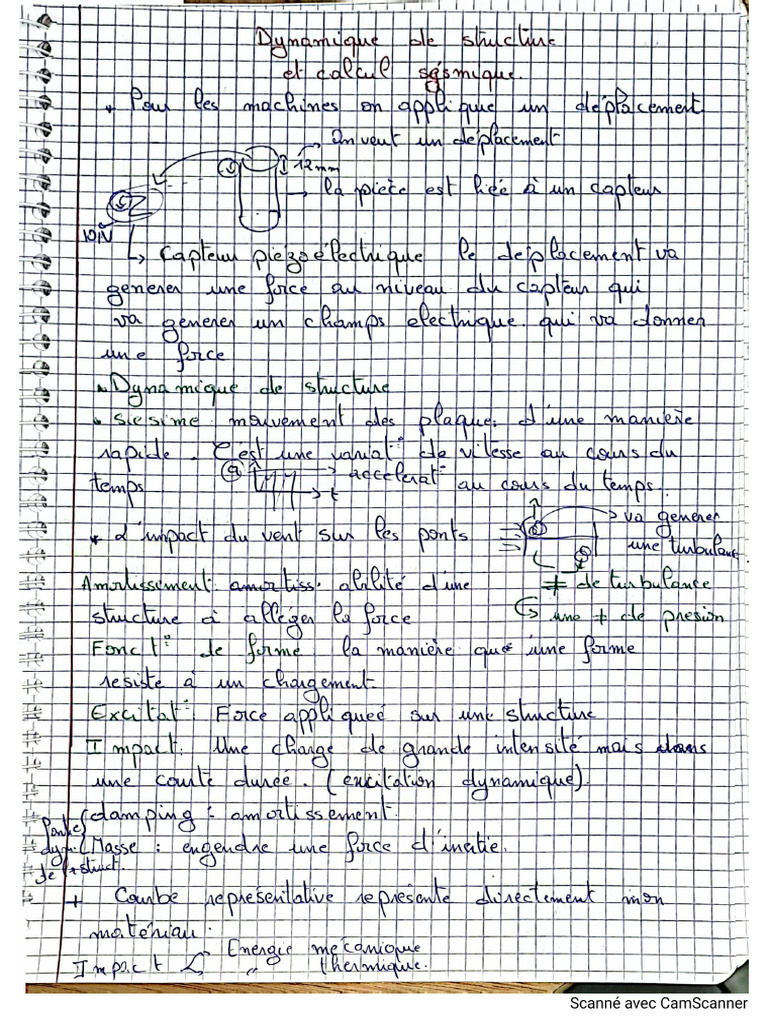 Dynamique de structure
et calcul sésmique.
* Pour les machines on applique un déplacement
→ on veut un déplacement
12mm
→ la pièce est liée à un capteur
10N
↳ Capteur piézoélectrique le déplacement va
generer une force au niveau du capteur qui
va generer un champs electrique. qui va donner
une force
• Dynamique de structure
• siesime mouvement des plaque. d'une manière
rapide. C'est une variat° de vitesse au cours du
temps
a
→ accélérat° au cours du temps.
t
* L'impact du vent sur les ponts
→ va generer
une turbulan
≠ de turbulance
↳ une ≠ de presion
Amortissement: amortiss. abilité d'une
structure à alléger la force
Fonct° de forme la manière que une forme
resiste à un chargement.
Excitat° Force appliqueé sur une structure
Impact: Une charge de grande intensité mais dans
une courte durée. (excitation dynamique).
damping: amortissement.
Partie
dyn.
de la struct.
Masse: engendre une force d'inertie.
+ Courbe representative represente directement mon
matériau.
Impact
Energie mécanique
" thermique.
Scanné avec CamScanner